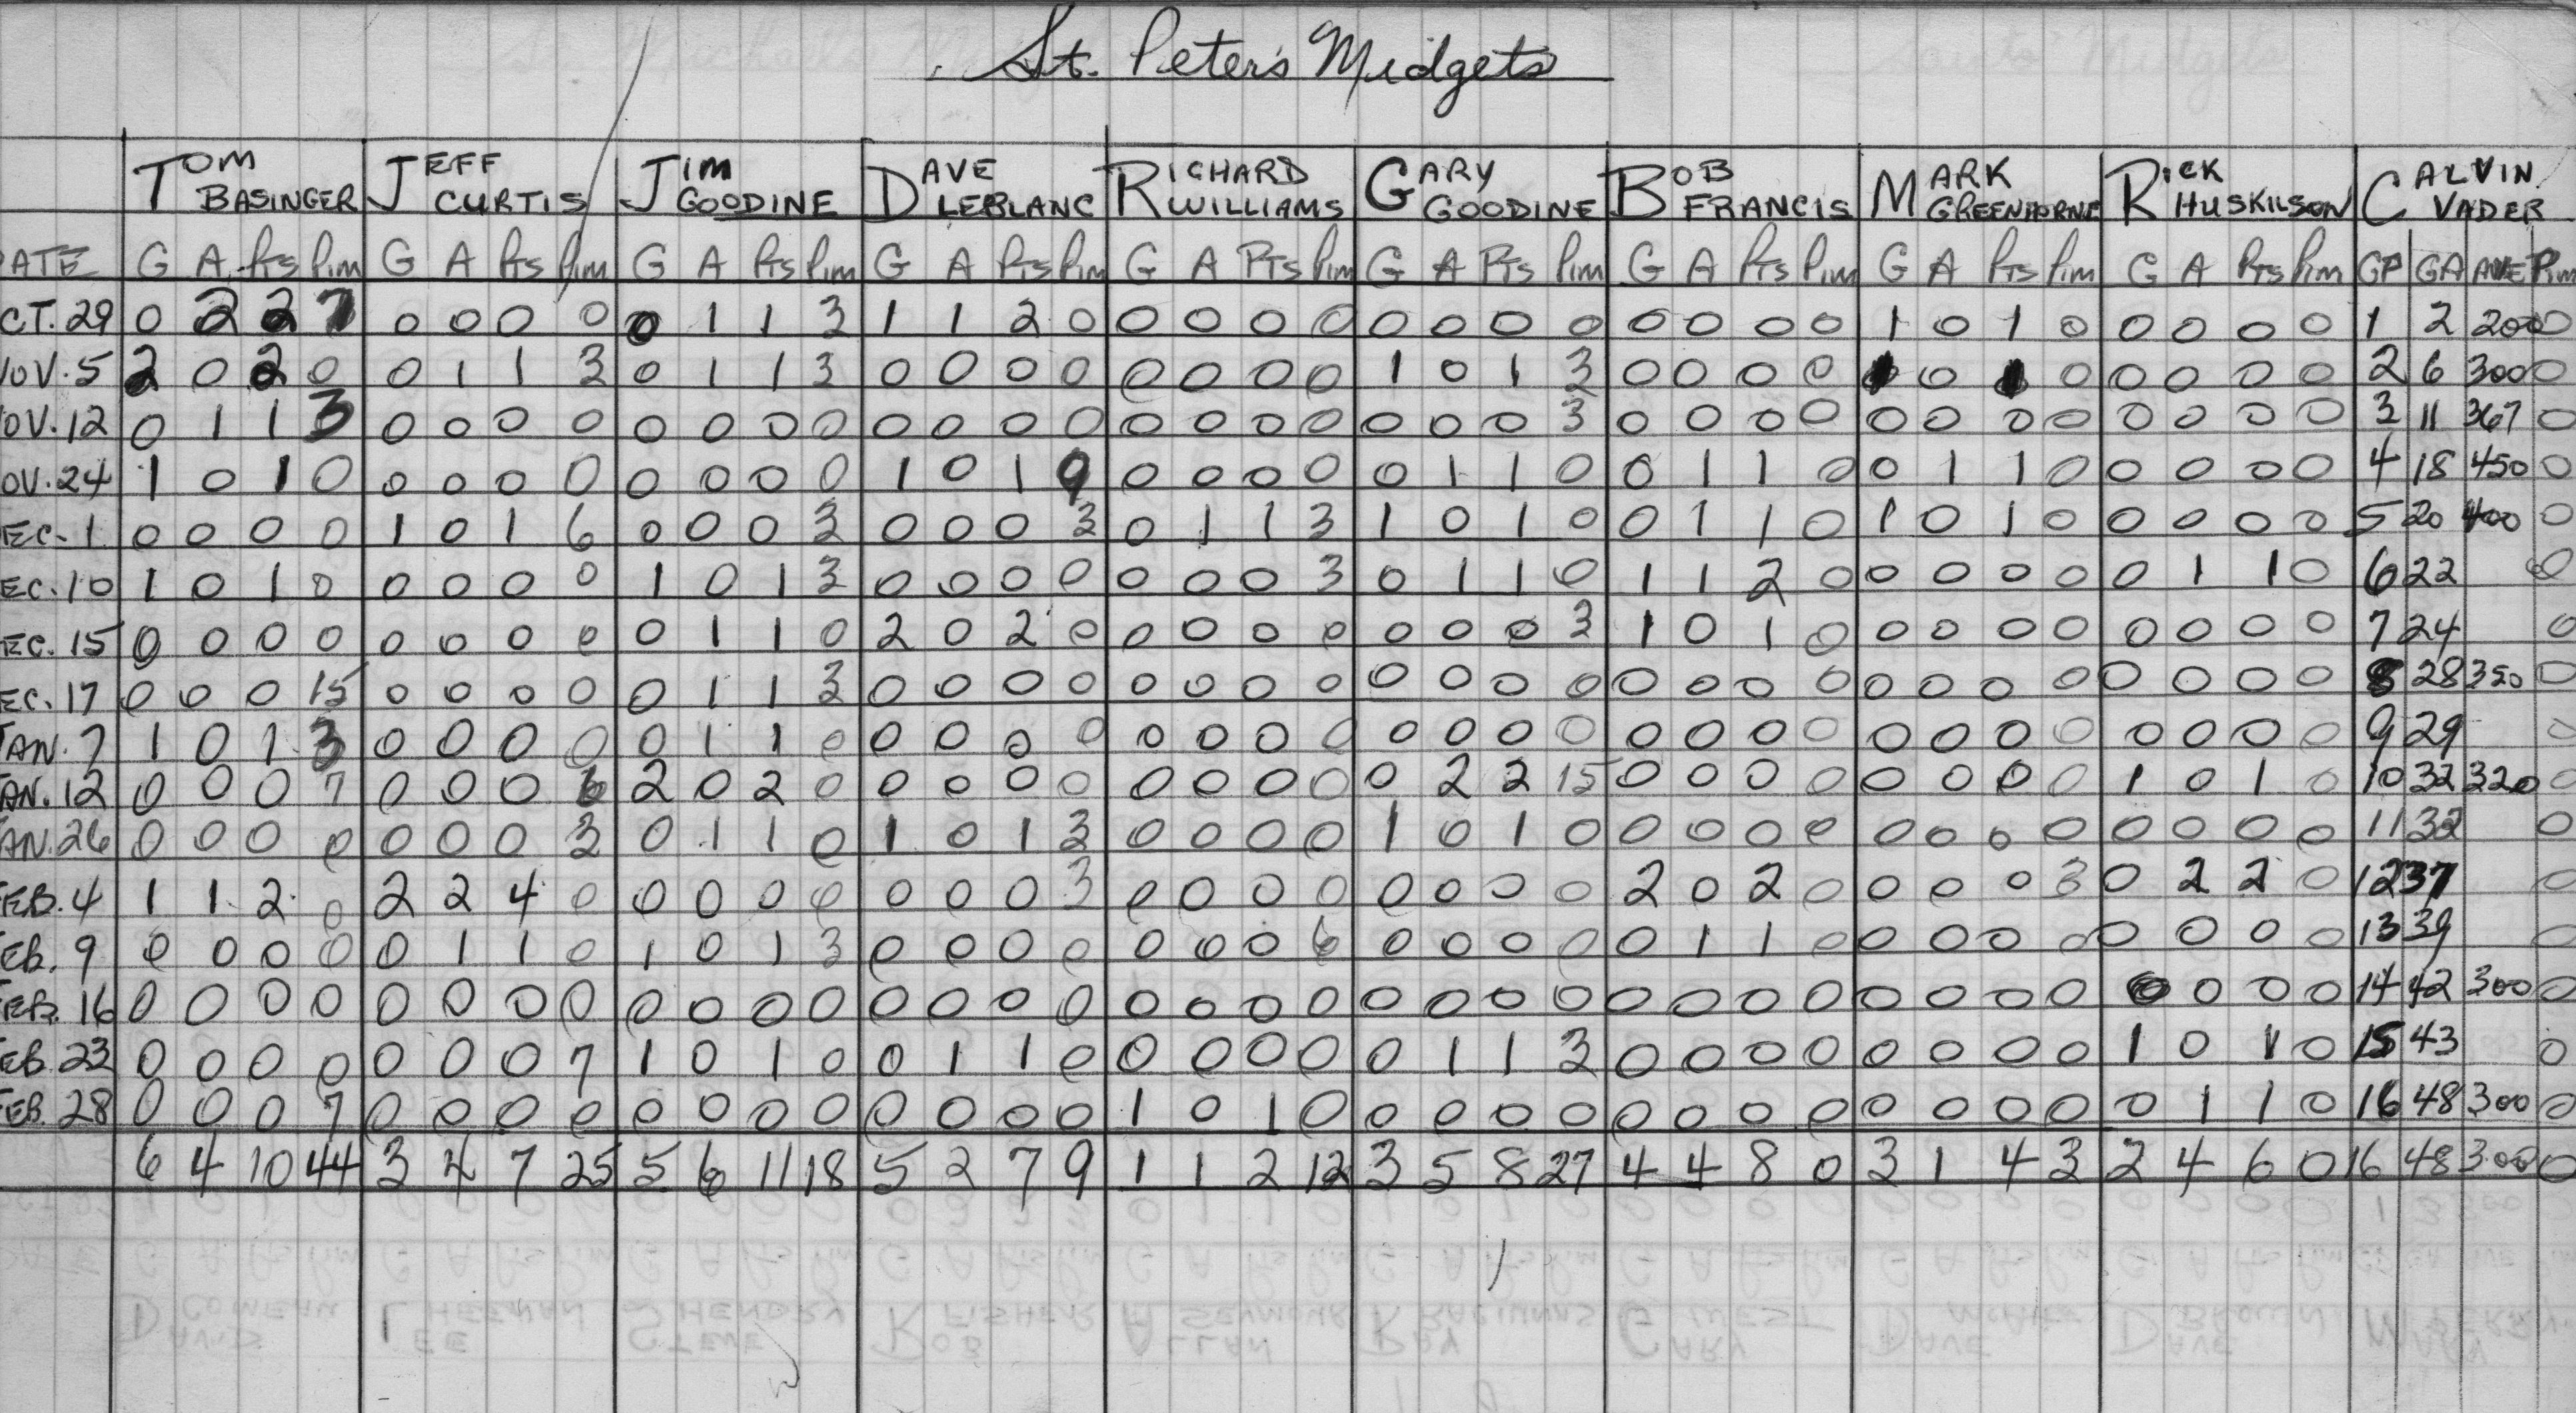 St. Peter's Midgets
TOM BASINGER JEFF CURTIS JIM GOODINE DAVE LEBLANC RICHARD WILLIAMS GARY GOODINE BOB FRANCIS MARK GREENHORNE RICK HUSKILSON CALVIN VADER
ATE G A Pts Pim G A Pts Pim G A Pts Pim G A Pts Pim G A PTs Pim G A Pts Pim G A Pts Pim G A Pts Pim G A Pts Pim GP GA AVE Pim
CT. 29 0 2 2 7 0 0 0 0 0 1 1 3 1 1 2 0 0 0 0 0 0 0 0 0 0 0 0 0 1 0 1 0 0 0 0 0 1 2 200 0
NOV. 5 2 0 2 0 0 1 1 3 0 1 1 3 0 0 0 0 0 0 0 0 1 0 1 3 0 0 0 0 1 0 1 0 0 0 0 0 2 6 300 0
OV. 12 0 1 1 3 0 0 0 0 0 0 0 0 0 0 0 0 0 0 0 0 0 0 0 3 0 0 0 0 0 0 0 0 0 0 0 0 3 11 367 0
OV. 24 1 0 1 0 0 0 0 0 0 0 0 0 1 0 1 9 0 0 0 0 0 1 1 0 0 1 1 0 0 1 1 0 0 0 0 0 4 18 450 0
EC. 1 0 0 0 0 1 0 1 6 0 0 0 3 0 0 0 3 0 1 1 3 1 0 1 0 0 1 1 0 1 0 1 0 0 0 0 0 5 20 400 0
EC. 10 1 0 1 0 0 0 0 0 1 0 1 3 0 0 0 0 0 0 0 3 0 1 1 0 1 1 2 0 0 0 0 0 0 1 1 0 6 22 0
EC. 15 0 0 0 0 0 0 0 0 0 1 1 0 2 0 2 0 0 0 0 0 0 0 0 3 1 0 1 0 0 0 0 0 0 0 0 0 7 24 0
EC. 17 0 0 0 15 0 0 0 0 0 1 1 3 0 0 0 0 0 0 0 0 0 0 0 0 0 0 0 0 0 0 0 0 0 0 0 0 8 28 350 0
AN. 7 1 0 1 3 0 0 0 0 0 1 1 0 0 0 0 0 0 0 0 0 0 0 0 0 0 0 0 0 0 0 0 0 0 0 0 0 9 29 0
AN. 12 0 0 0 7 0 0 0 6 2 0 2 0 0 0 0 0 0 0 0 0 0 2 2 15 0 0 0 0 0 0 0 0 1 0 1 0 10 32 320 0
AN. 26 0 0 0 0 0 0 0 3 0 1 1 0 1 0 1 3 0 0 0 0 1 0 1 0 0 0 0 0 0 0 0 0 0 0 0 0 11 32 0
FEB. 4 1 1 2 0 2 2 4 0 0 0 0 0 0 0 0 3 0 0 0 0 0 0 0 0 2 0 2 0 0 0 0 3 0 2 2 0 12 37 0
EB. 9 0 0 0 0 0 1 1 0 1 0 1 3 0 0 0 0 0 0 0 6 0 0 0 0 0 1 1 0 0 0 0 0 0 0 0 0 13 39 0
FEB. 16 0 0 0 0 0 0 0 0 0 0 0 0 0 0 0 0 0 0 0 0 0 0 0 0 0 0 0 0 0 0 0 0 0 0 0 0 14 42 300 0
EB. 23 0 0 0 0 0 0 0 7 1 0 1 0 0 1 1 0 0 0 0 0 0 1 1 3 0 0 0 0 0 0 0 0 1 0 1 0 15 43 0
FEB. 28 0 0 0 7 0 0 0 0 0 0 0 0 0 0 0 0 1 0 1 0 0 0 0 0 0 0 0 0 0 0 0 0 0 1 1 0 16 48 300 0
6 4 10 44 3 4 7 25 5 6 11 18 5 2 7 9 1 1 2 12 3 5 8 27 4 4 8 0 3 1 4 3 2 4 6 0 16 48 300 0